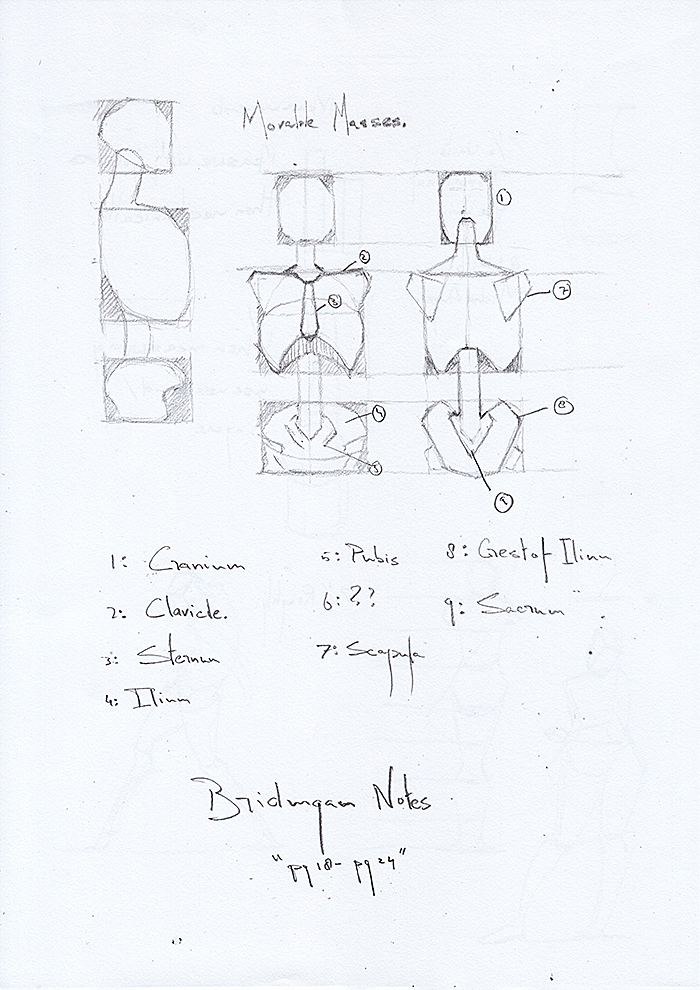 Movable Masses.
1
2
3
7
4
8
5
9
1: Cranium
5: Pubis
8: Crest of Ilium
2: Clavicle.
6: ??
9: Sacrum
3: Sternum
7: Scapula
4: Ilium
Bridmgan Notes
"pg 18- pg 24"